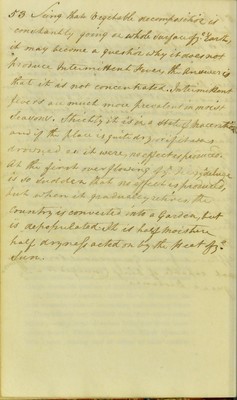 53 Seing that Vegetable decomposition is
constantly going on whole surface of ye Earth
it may become a question why it does not
produce Intermittent Fevers the Answer is
that it is not concentrated. Intermittent
fevers are much more prevalent in moist
Seasons. Strictly it is in a state of
and if the place is quite dry or if it has
drowned as it were no effect is produced.
At the first overflowing of ye
is so sudden that no effect is produced,
but when it gradually retires the
Country is converted into a Garden, but
is depopulated. It is half moisture
half dryness acted on by the Heat of ye
Sun.